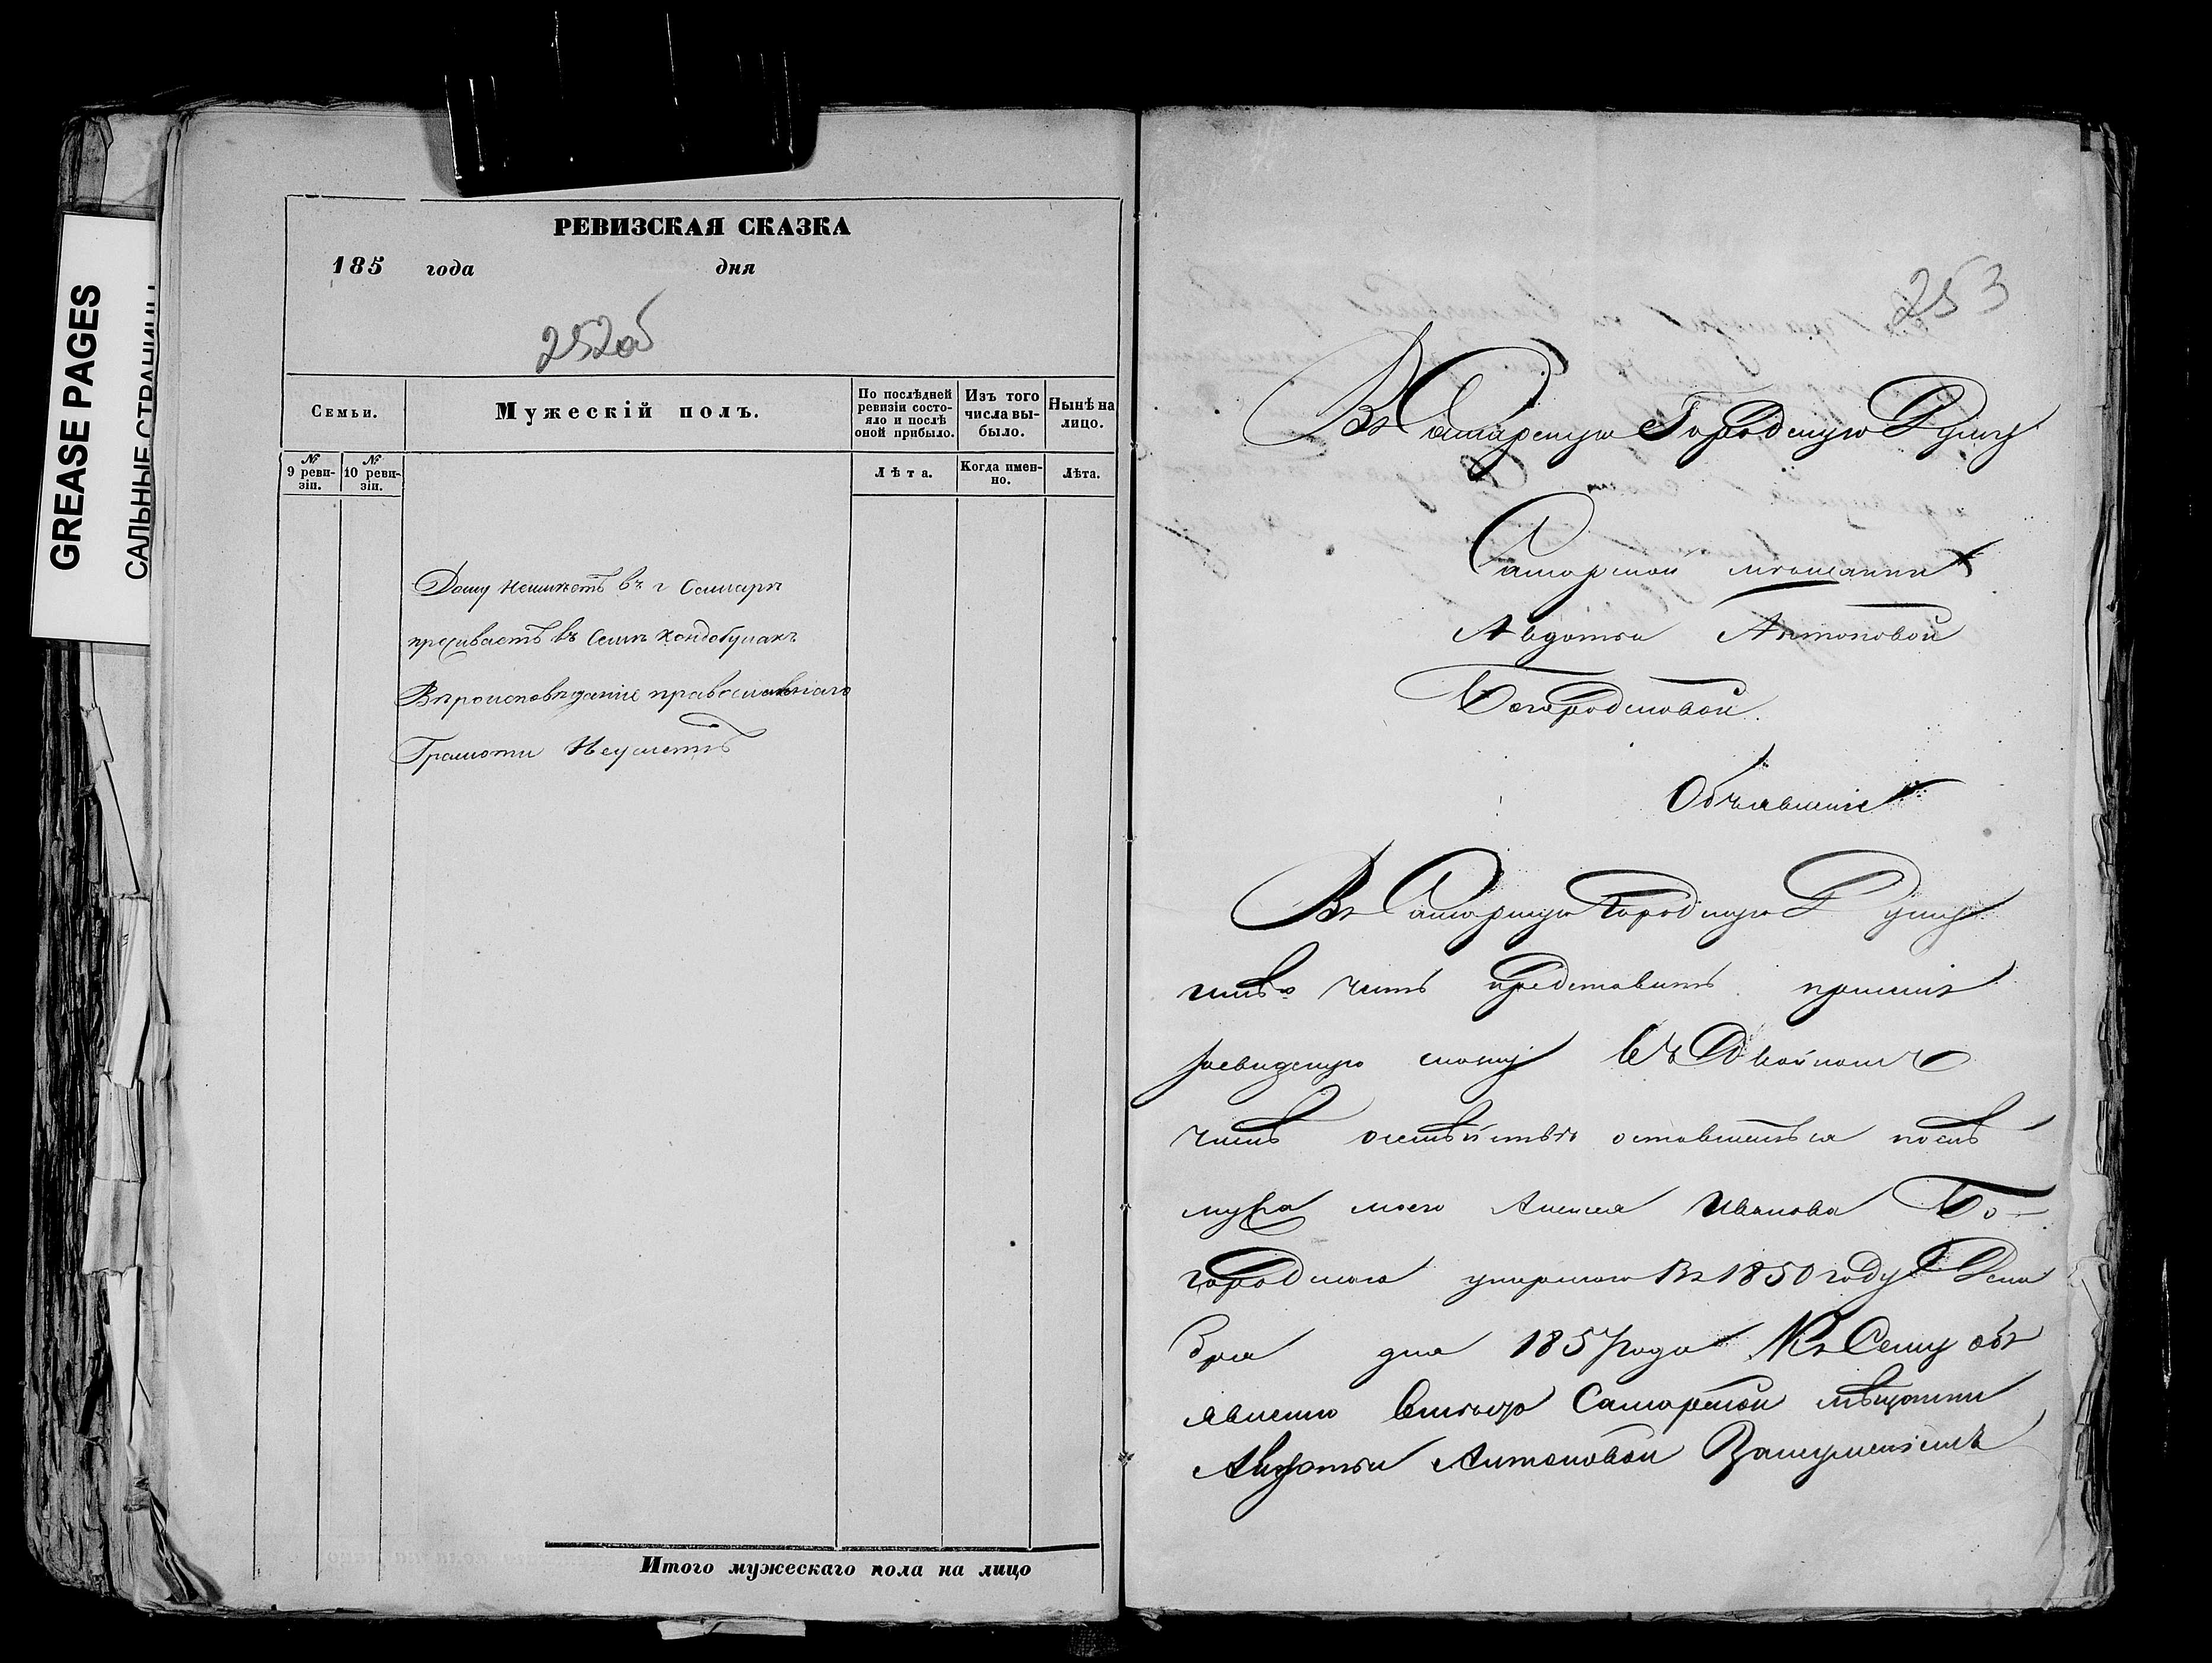 GREASE PAGES
САЛЬНЫЕ СТРАНИЦЫ
РЕВИЗСКАЯ СКАЗКА
185 года дня
252об
Семьи.
Мужескій полъ.
По послѣдней ревизіи состояло и послѣ оной прибыло.
Изъ того числа выбыло.
Нынѣ на лицо.
№ 9 ревизіи.
№ 10 ревизіи.
Лѣта.
Когда именно.
Лѣта.
Дому неимѣетъ въ г Самарѣ
проживаетъ въ Селѣ Кондобулакъ
Вѣроисповѣданіе православнаго
Грамоти Неумѣетъ
Итого мужескаго пола на лицо
253
Въ Самарскую Городскую Думу
Самарской мѣщанки
Авдотьи Антоновой
Богородсковой
Объявленіе
Въ Самарскую Городскую Думу
имѣю честь представить при семъ
ревизскую скаску въ Двойномъ
числѣ осемѣйствѣ оставшемъся послѣ
мужа моего Алексея Иванова Бо-
городскаго умершаго Въ 1850 году Дека
бря дня 1857 года Къ Сему объ
явленію вместо Самарской мѣщанки
Авдотьи Антоновой